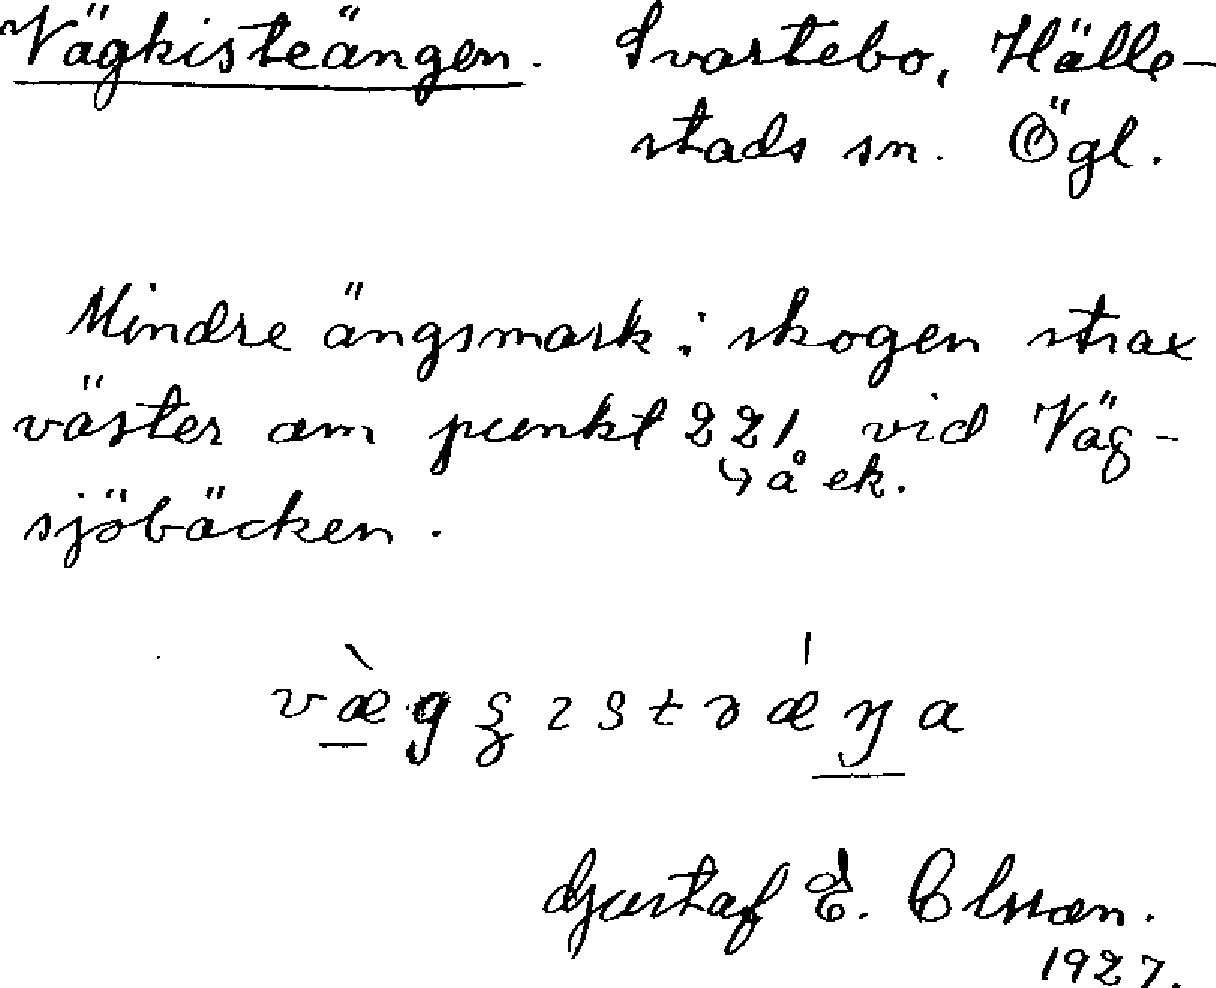 Vägkisteängen. Svartebo, Hälle-
stads sn. Ögl.
Mindre ängsmark i skogen strax
väster om punkt 221 vid Väg-
↳ å ek.
sjöbäcken.
Gustaf E. Olsson.
1927.